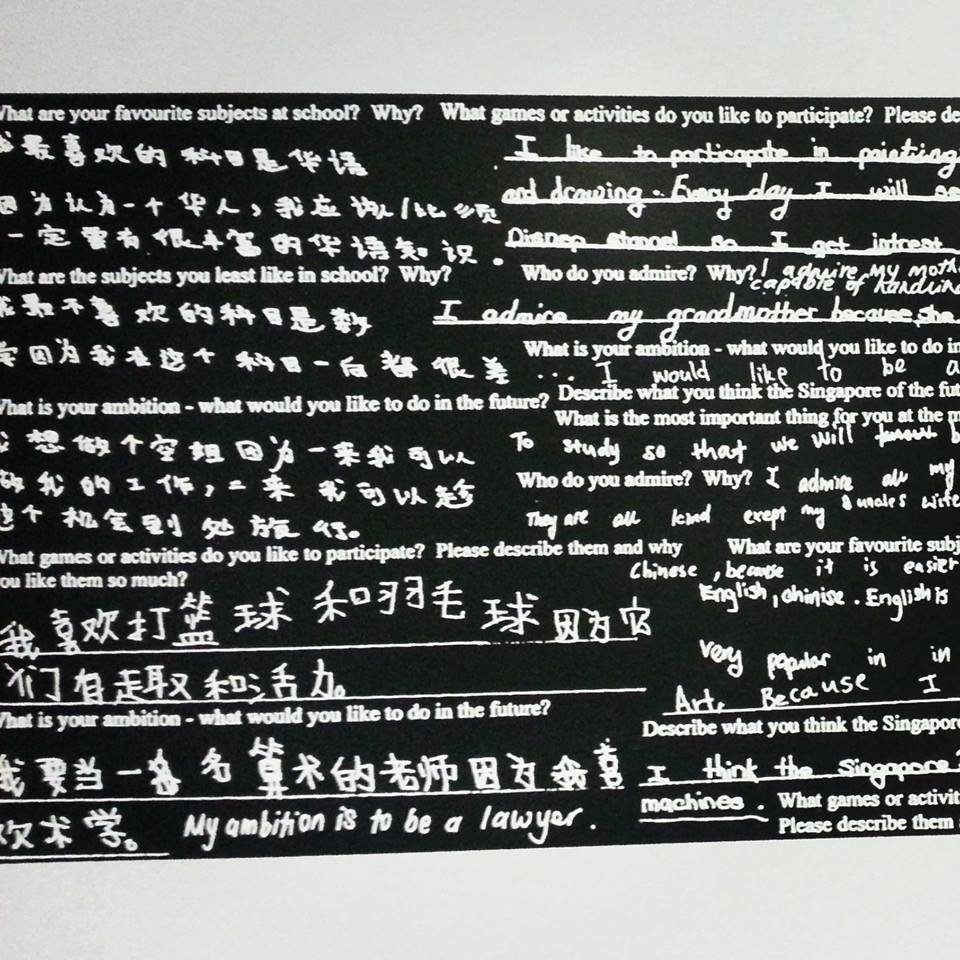 What are your favourite subjects at school? Why?
我最喜欢的科目是华语
因为认为一个华人，我应该/必须
一定要有很丰富的华语知识。
What are the subjects you least like in school? Why?
我最不喜欢的科目是数
学因为我在这个科目一向都很差
What is your ambition - what would you like to do in the future?
我想做个空姐因为一来我可以
做我的工作，二来我可以趁
这个机会到处旅行。
What games or activities do you like to participate? Please describe them and why
you like them so much?
我喜欢打篮球和羽毛球因为它
们有趣和活力。
What is your ambition - what would you like to do in the future?
我要当一名算术的老师因为我喜
欢术学。
My ambition is to be a lawyer.
What games or activities do you like to participate? Please de
I like to particapate in painting
and drawing. Every day I will se
Disnep channel so I get intrest
Who do you admire? Why? I admire my moth
capable of handlin
I admire my grandmother because she
What is your ambition - what would you like to do in
... I would like to be a
Describe what you think the Singapore of the fut
What is the most important thing for you at the m
To study so that we will
Who do you admire? Why? I admire all my
They are all kind exept my 2 uncles wife
What are your favourite subj
Chinese, because it is easier
English, chinise. English is
very popular in in
Art, Because I
Describe what you think the Singapore
I think the Singapore
machines.
What games or activit
Please describe them